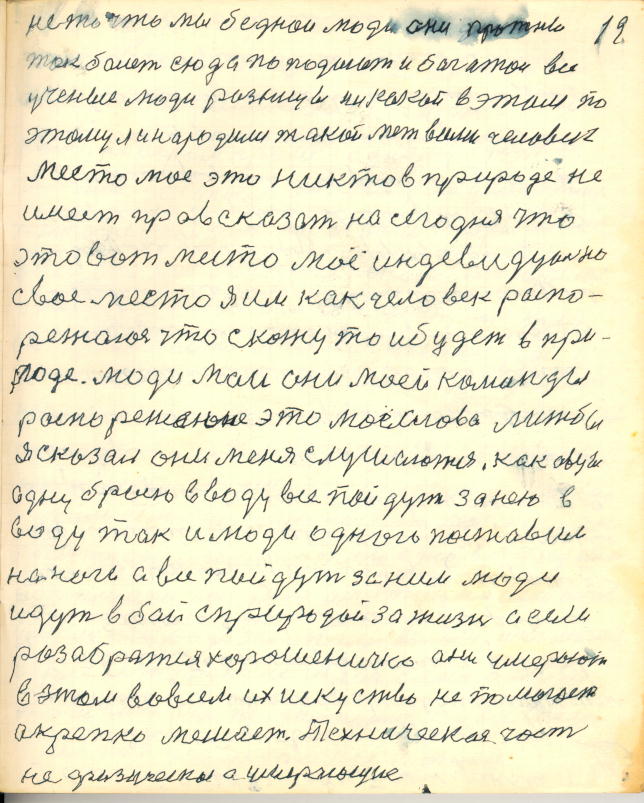 не то что мы бедной люди они против 19
так болет сюда попадают и багатои все
ученые люди разницы никакой в этом по
этому и народили такой мет всеми человек
место мое это никто в природе не
имеет прав сказат на сегодня что
это вот место моё индевидуално
свое место я им как человек распо-
режаюя что скажу то и будет в при-
роде. люди маи они моей команды
распорежение это моё слова лижбы
я сказал они меня слушаются. как овцы
одну брось в воду все пойдут за нею в
воду так и люди одного поставим
на ноги а все пойдут за ним люди
идут в бой с природой за жизн а если
розабратя хорошеничко они умерают
в этом вовсем их искуство не помогает
а крепко мешает. Техническая част
не физически а умерающие